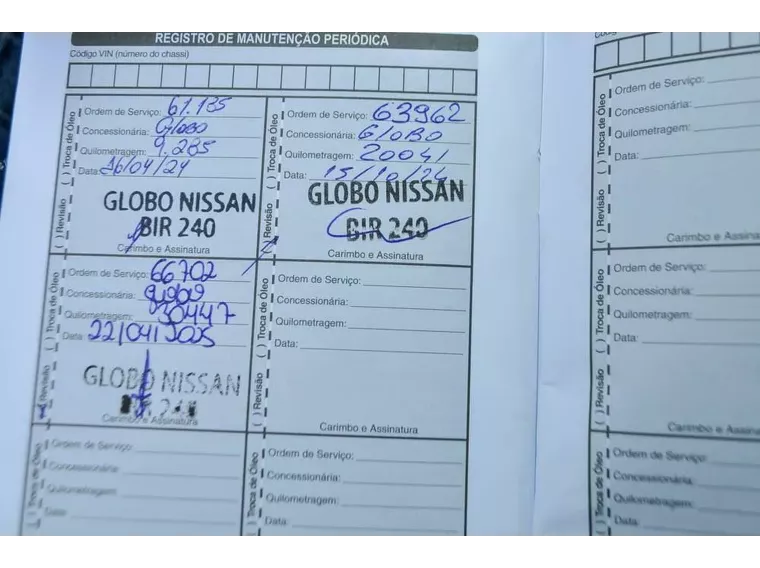 REGISTRO DE MANUTENÇÃO PERIÓDICA
Código VIN (número do chassi)
( ) Revisão ( ) Troca de Óleo
Ordem de Serviço: 61.135
Concessionária: Globo
Quilometragem: 9.285
Data: 16/04/24
GLOBO NISSAN
BIR 240
Carimbo e Assinatura
( ) Revisão ( ) Troca de Óleo
Ordem de Serviço: 63962
Concessionária: GLOBO
Quilometragem: 20041
Data: 15/10/24
GLOBO NISSAN
BIR 240
Carimbo e Assinatura
Revisão ( ) Troca de Óleo
Ordem de Serviço: 66702
Concessionária: globo
Quilometragem: 30447
Data 22/04/2025
GLOBO NISSAN
Carimbo e Assinatura
( ) Revisão ( ) Troca de Óleo
Ordem de Serviço:
Concessionária:
Quilometragem:
Data:
Carimbo e Assinatura
Troca de Óleo
Ordem de Serviço:
Concessionária:
Quilometragem:
Data:
Troca de Óleo
Ordem de Serviço:
Concessionária:
Quilometragem:
Data:
( ) Revisão ( ) Troca de Óleo
Ordem de Serviço:
Concessionária:
Quilometragem:
Data:
Carimbo e
( ) Revisão ( ) Troca de Óleo
Ordem de Serviço:
Concessionária:
Quilometragem:
Data:
Carimbo e
Troca de Óleo
Ordem de Serviço:
Concessionária:
Quilometragem:
Data: